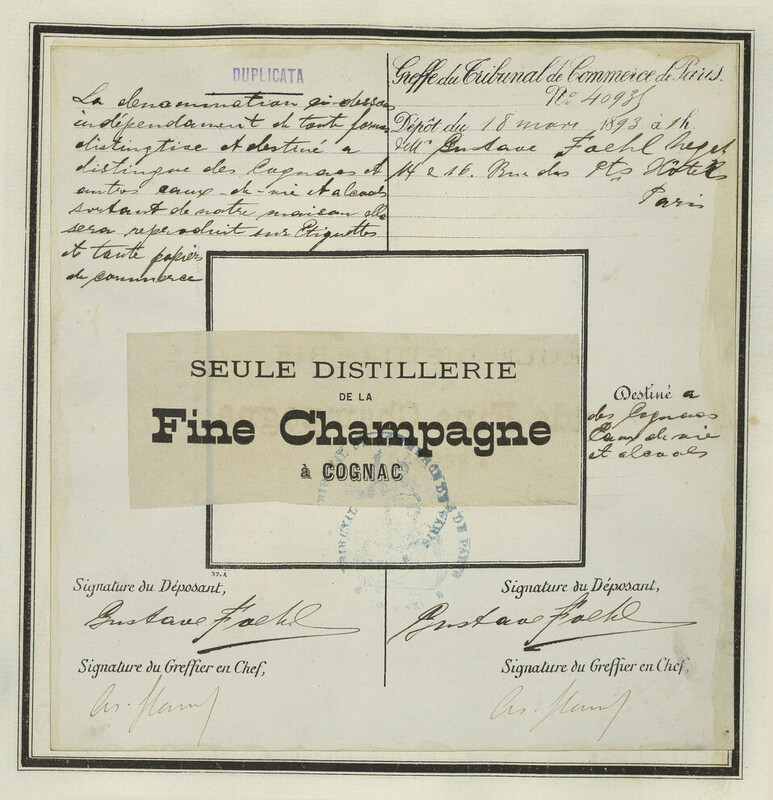 DUPLICATA
La denomination ci-dessus
indépendament de toute forme
distingtive et destiné a
distingue des Cognacs et
autres eaux-de-vie et alcools
sortant de notre maison elle
sera reproduit sur Etiquettes
et toute papiers
de commerce
Greffe du Tribunal de Commerce de Paris.
No 40935
Dépôt du 18 mars 1893 à 1h
Gustave Foehl Negt
14 & 16. Rue des Pts Hôtels
Paris
SEULE DISTILLERIE
DE LA
Fine Champagne
à COGNAC
Destiné a
des Cognacs
Eaux de vie
et alcools
37.A
Signature du Déposant,
Gustave Foehl
Signature du Greffier en Chef,
Signature du Déposant,
Gustave Foehl
Signature du Greffier en Chef,